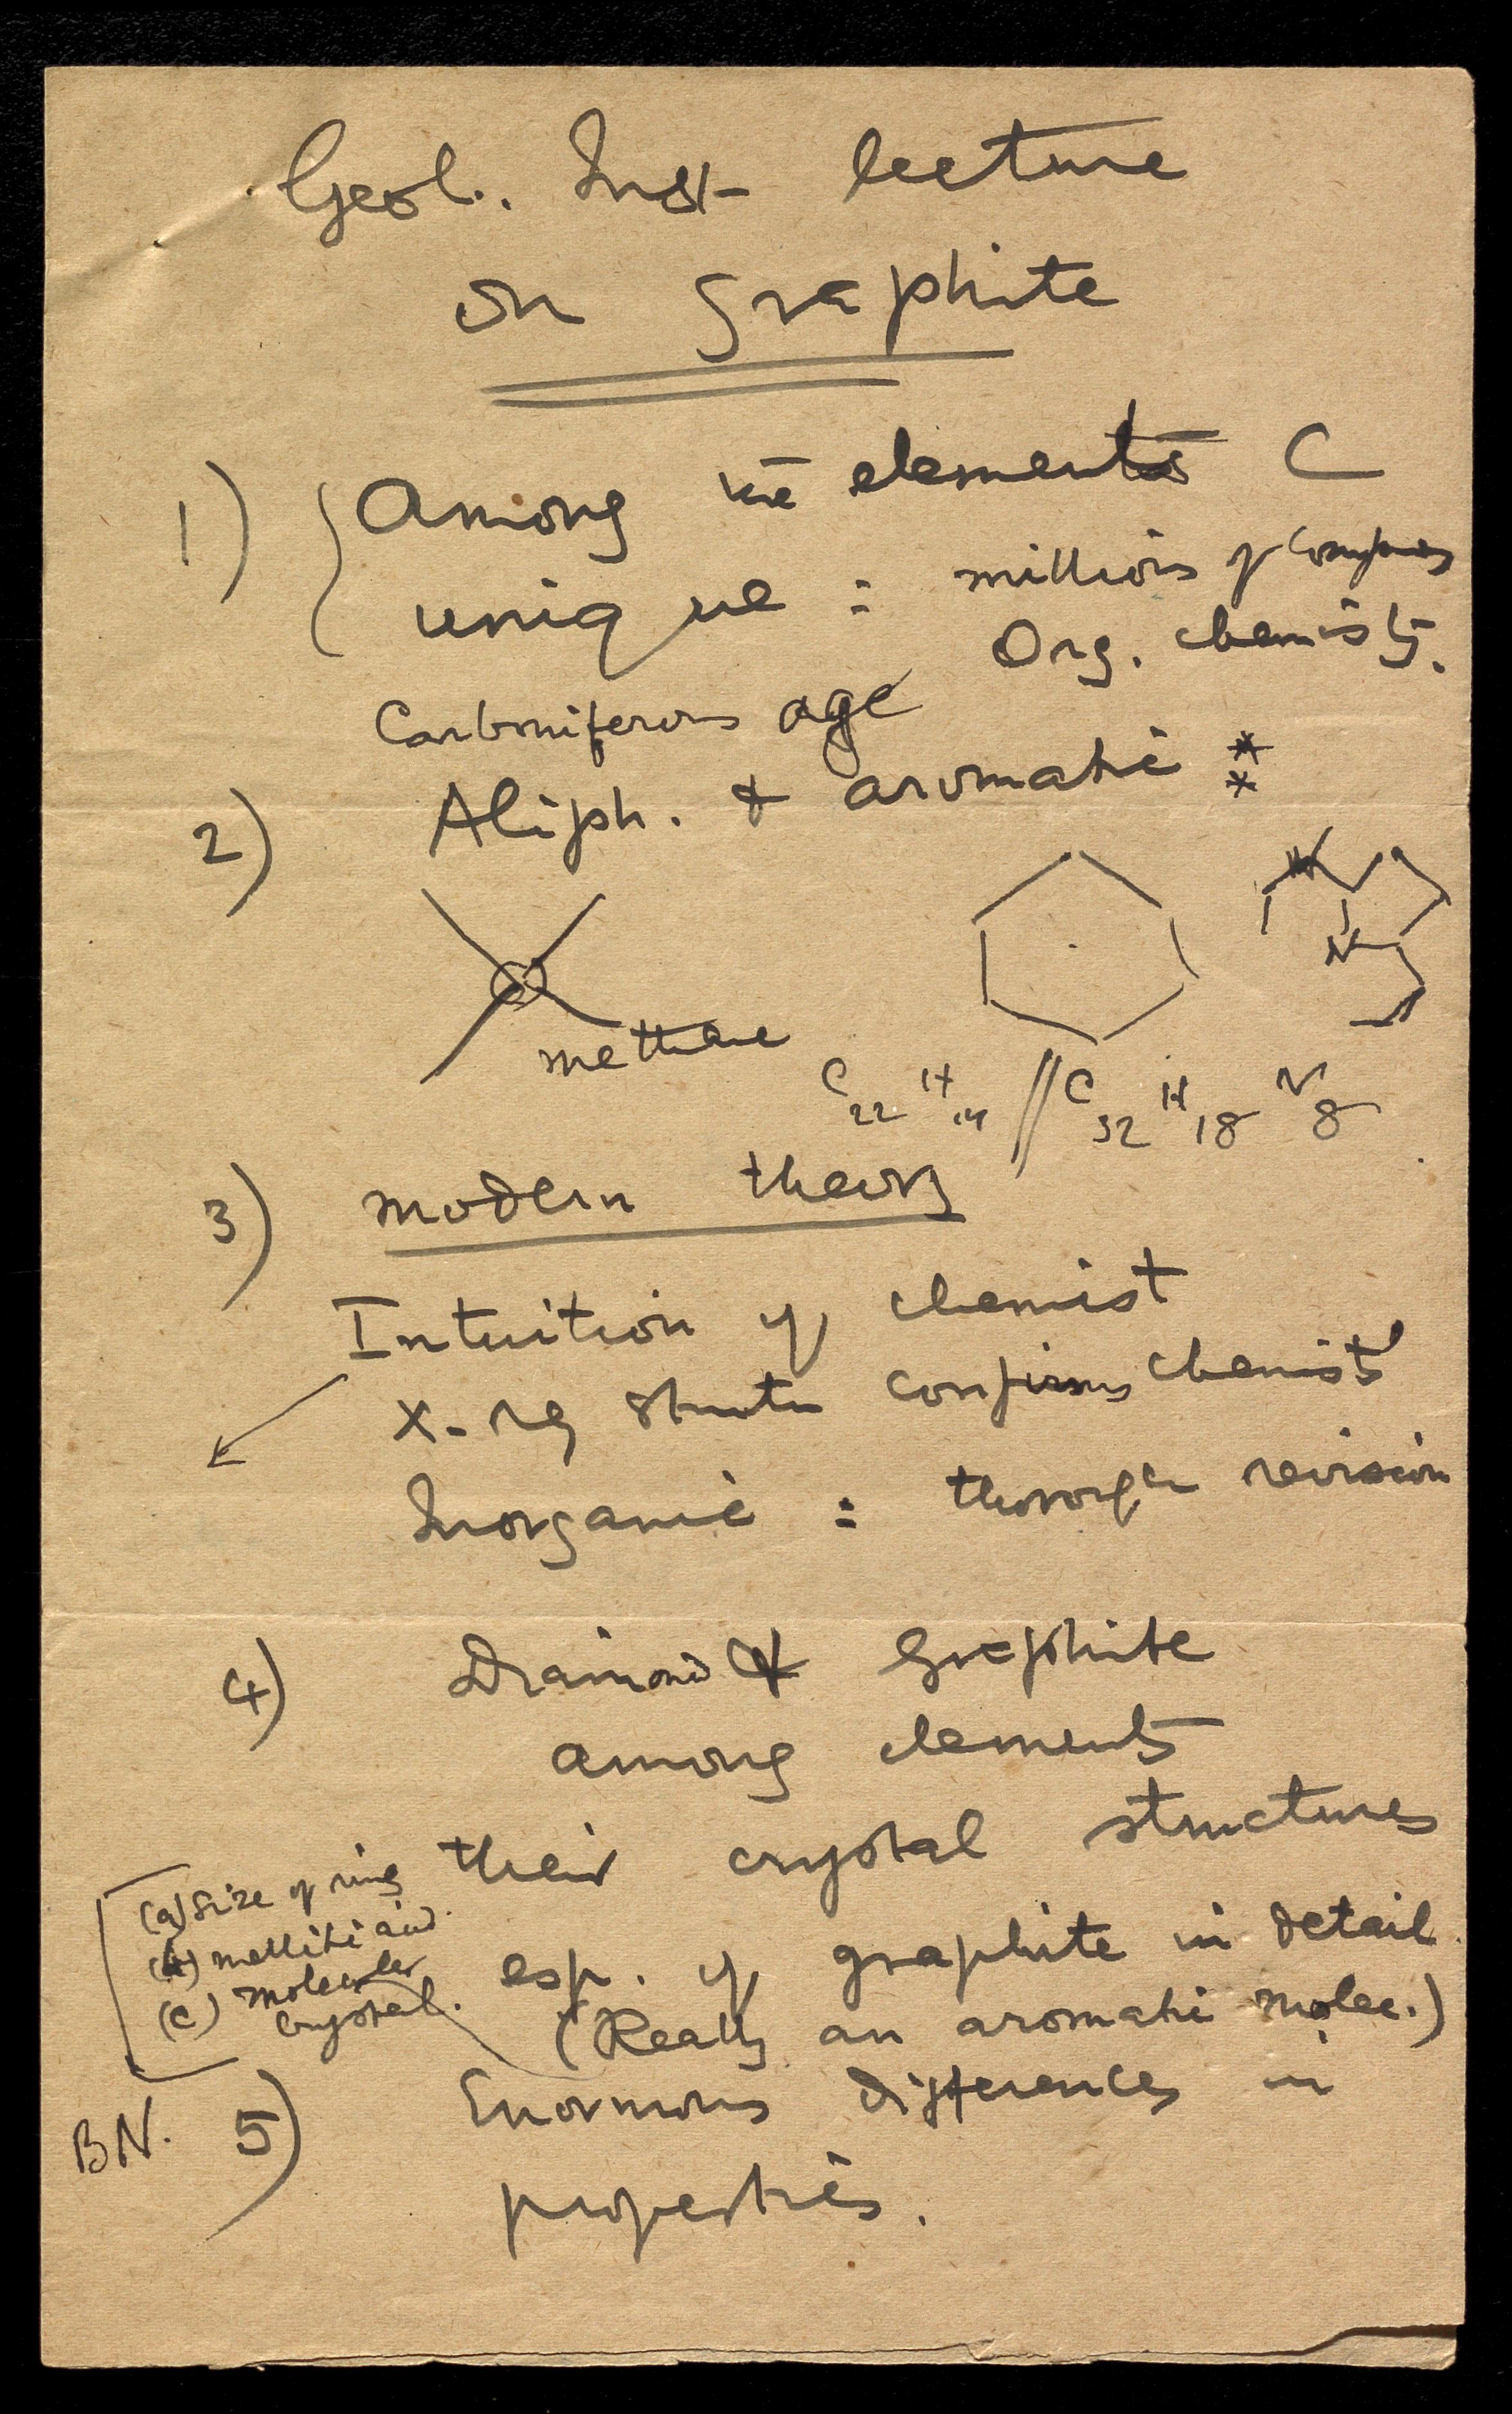 Geol. Inst lecture
on graphite
1) Among the elements C
unique : millions of compounds
Org. chemistry.
Carboniferous age
2) Aliph. & aromatic **
N
N
methane
C22 H14 // C32 H18 N8
3) modern theory
Intuition of chemist
X-ray structure confirms chemist
Inorganic : thorough revision
4) Diamond & Graphite
among elements
their crystal structures
(a) Size of ring
(b) mellitic acid.
(c) molecular
crystal.
esp. of graphite in detail.
(Really an aromatic molec.)
BN. 5) Enormous differences in
properties.